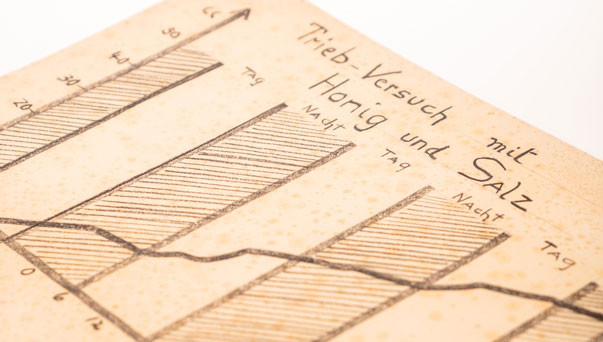 Trieb-Versuch mit
Honig und Salz
cc
50
40
30
20
Tag
Nacht
Tag
Nacht
Tag
0
6
12